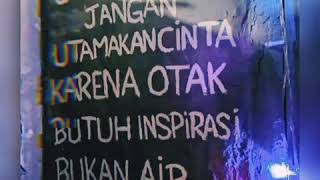 JANGAN
UTAMAKAN CINTA
KARENA OTAK
BUTUH INSPIRASi
BUKAN AiR